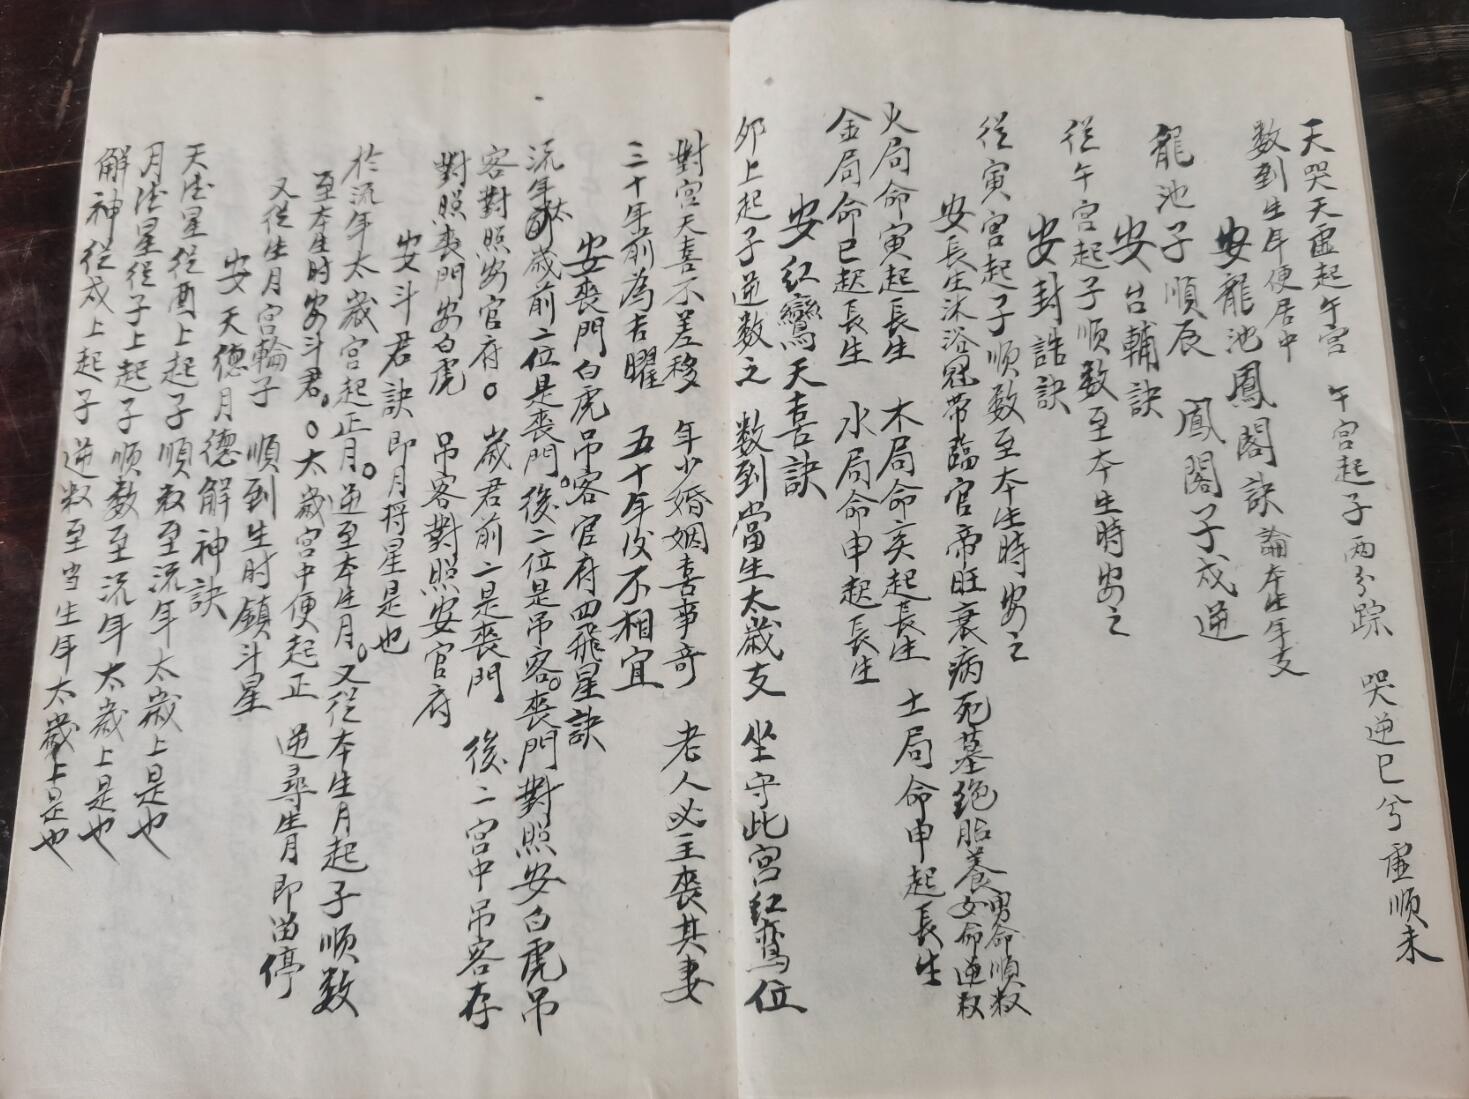 天哭天虛起午宮　午宮起子両分踪　哭逆巳兮虛順未
数到生年便居中
安龍池鳳閣訣論本生年支
龍池子順辰　鳳閣子戌逆
安台輔訣
從午宮起子順数至本生時安之
安封誥訣
從寅宮起子順数至本生時安之
安長生沐浴冠帶臨官帝旺衰病死墓絶胎養男命順数女命逆数
火局命寅起長生　木局命亥起長生　土局命申起長生
金局命巳起長生　水局命申起長生
安紅鸞天喜訣
卯上起子逆数之　数到當生太歲支　坐守此宮红鸞位
對宮天喜不差移　年少婚姻喜事奇　老人必主喪其妻
三十年前為吉曜　五十年後不相宜
安喪門白虎吊客官府四飛星訣
流年太歲前二位是喪門。後二位是吊客。喪門對照安白虎吊
客對照安官府。　歲君前二是喪門　後二宮中吊客存
對照喪門安白虎　吊客對照安官府
安斗君訣即月将星是也
於流年太歲宮起正月。逆至本生月。又從本生月起子順数
至本生时安斗君。○太歲宮中便起正　逆尋生月即留停
又從生月宮輪子　順到生时鎮斗星
安天德月德解神訣
天德星從酉上起子順数至流年太歲上是也
月德星從子上起子順数至流年太歲上是也
解神從戌上起子逆数至当生年太歲上是也